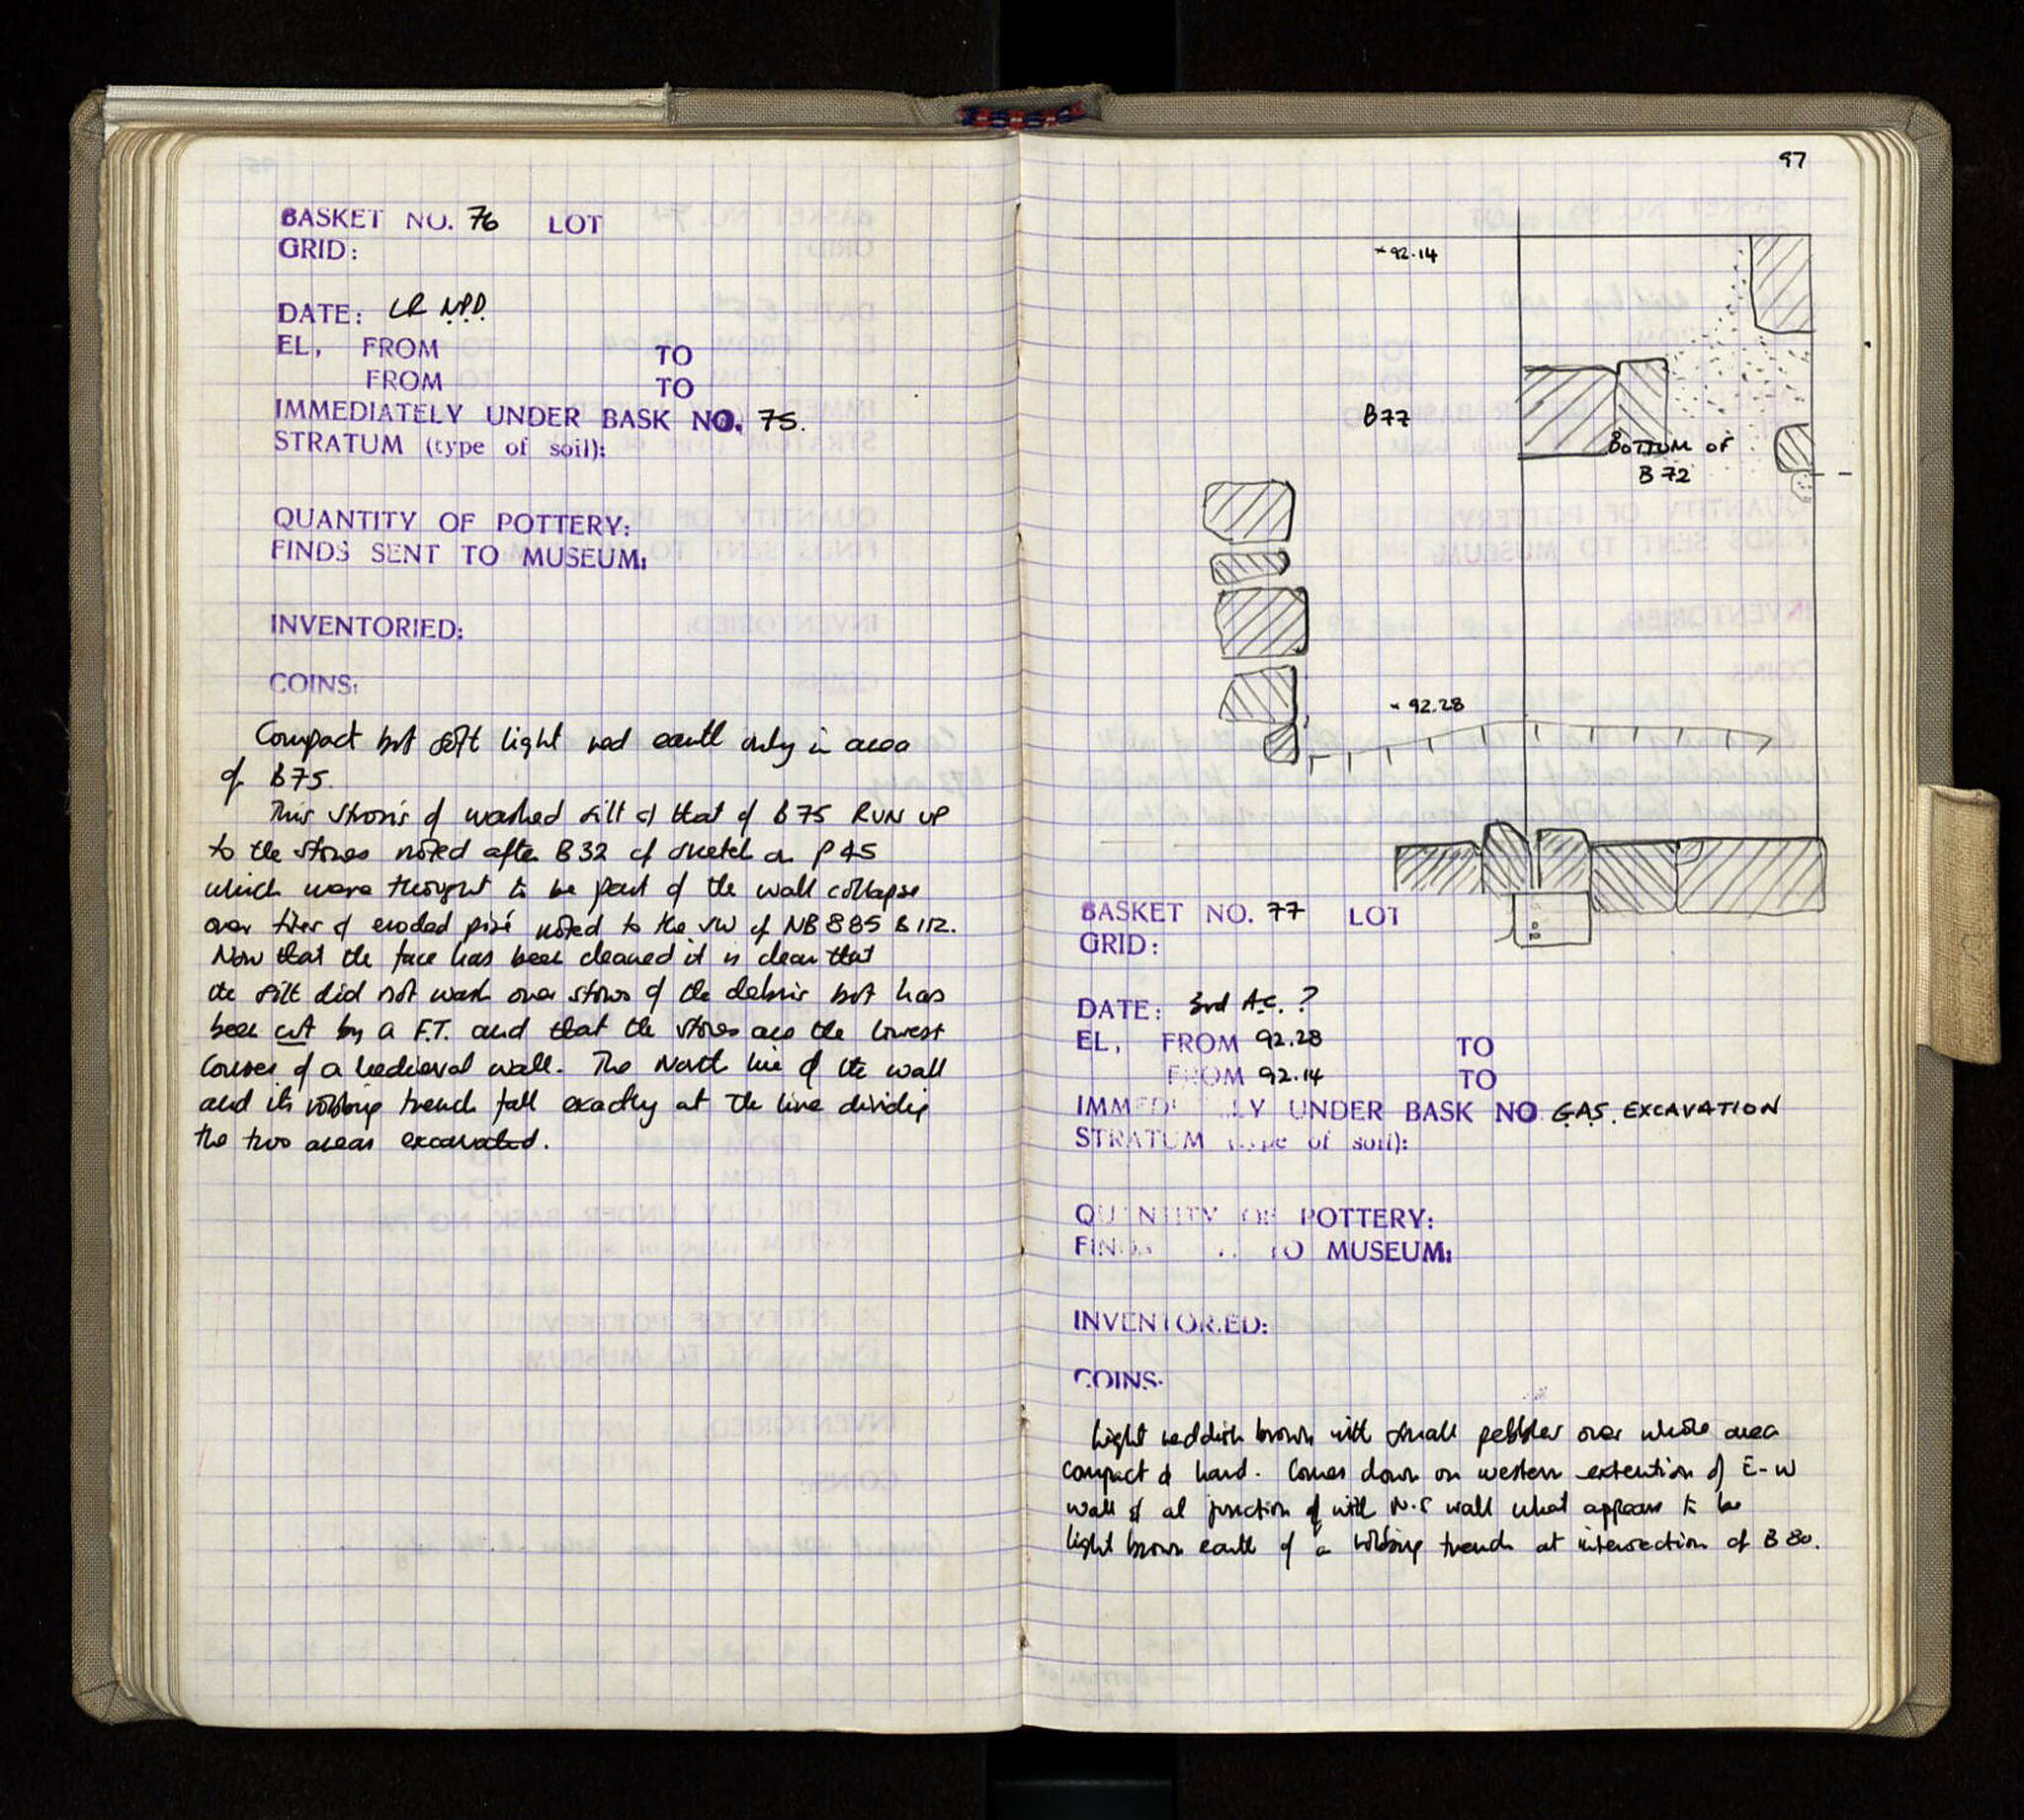 BASKET NO. 76 LOT
GRID:
DATE: LR N.P.D.
EL, FROM TO
FROM TO
IMMEDIATELY UNDER BASK NO. 75.
STRATUM (type of soil):
QUANTITY OF POTTERY:
FINDS SENT TO MUSEUM:
INVENTORIED:
COINS:
Compact but soft light red earth only in area
of B75.
This strosis of washed silt & that of B75 RUN UP
to the stones noted after B32 cf sketch on P45
which were thought to be part of the wall collapse
over tiles & eroded pisé noted to the SW of NB 885 B 112.
Now that the face has been cleaned it is clear that
the silt did not wash over stones of the debris but has
been cut by a F.T. and that the stones are the lowest
courses of a Medieval wall. The North line of the wall
and its robbing trench fall exactly at the line dividing
the two areas excavated.
97
92.14
B77
BOTTOM OF
B 72
92.28
BASKET NO. 77 LOT
GRID:
DATE: 3rd A.C. ?
EL, FROM 92.28 TO
FROM 92.14 TO
IMMEDI LY UNDER BASK NO GAS. EXCAVATION
STRATUM (type of soil):
QUANTITY OF POTTERY:
FINDS TO MUSEUM:
INVENTORIED:
COINS.
Light reddish brown with small pebbles over whole area
compact & hard. Comes down on western extention of E-W
wall & at junction of with N-S wall what appears to be
light brown earth of a robbing trench at intersection of B 80.